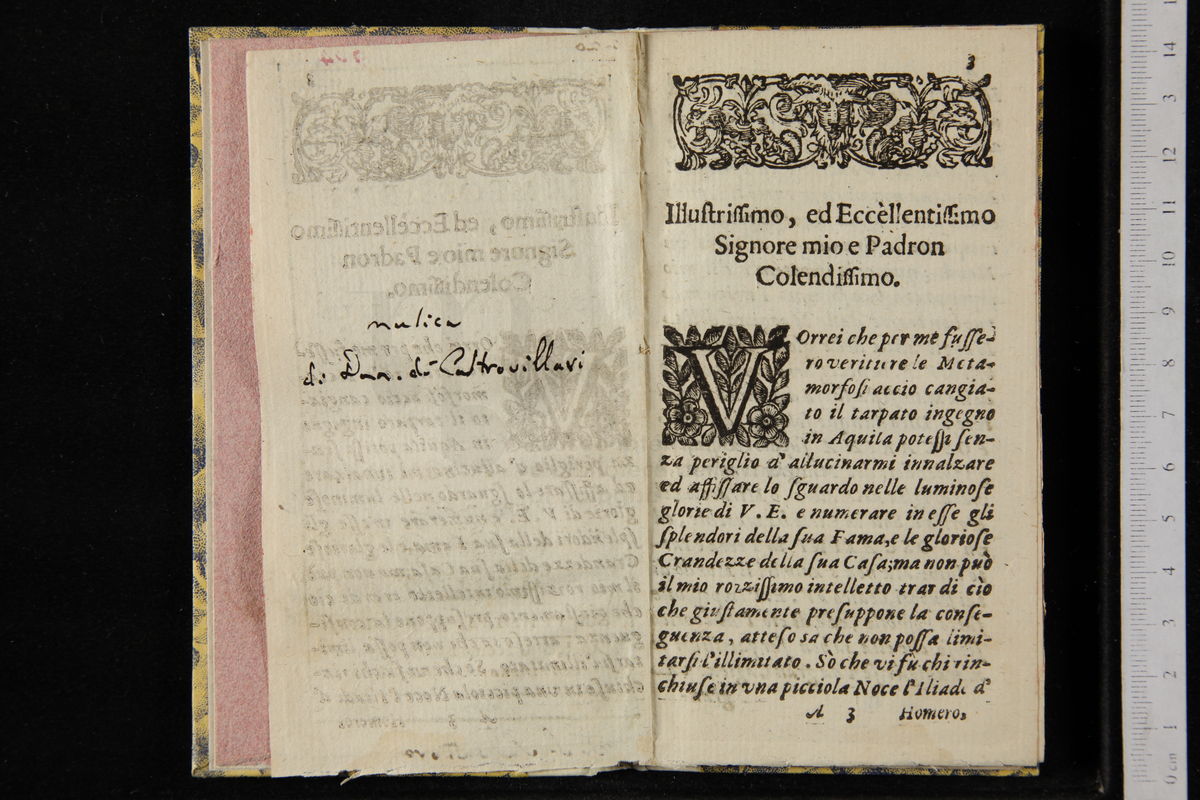 musica
di Dan. di Castrovillari
3
Illustrissimo, ed Eccèllentissimo
Signore mio e Padron
Colendissimo.
VOrrei che per me fusse-
ro veriture le Meta-
morfosi accio cangia-
to il tarpato ingegno
in Aquila potessi sen-
za periglio d' allucinarmi innalzare
ed affissare lo sguardo nelle luminose
glorie di V. E. e numerare in esse gli
splendori della sua Fama, e le gloriose
Crandezze della sua Casa; ma non può
il mio rozzissimo intelletto trar di ciò
che giustamente presuppone la conse-
guenza, atteso sa che non possa limi-
tarsi l'illimitato. Sò che vi fù chi rin-
chiuse in vna picciola Noce l'Iliade d'
A 3 Homero,
14
13
12
11
10
9
8
7
6
5
4
3
2
1
0 cm